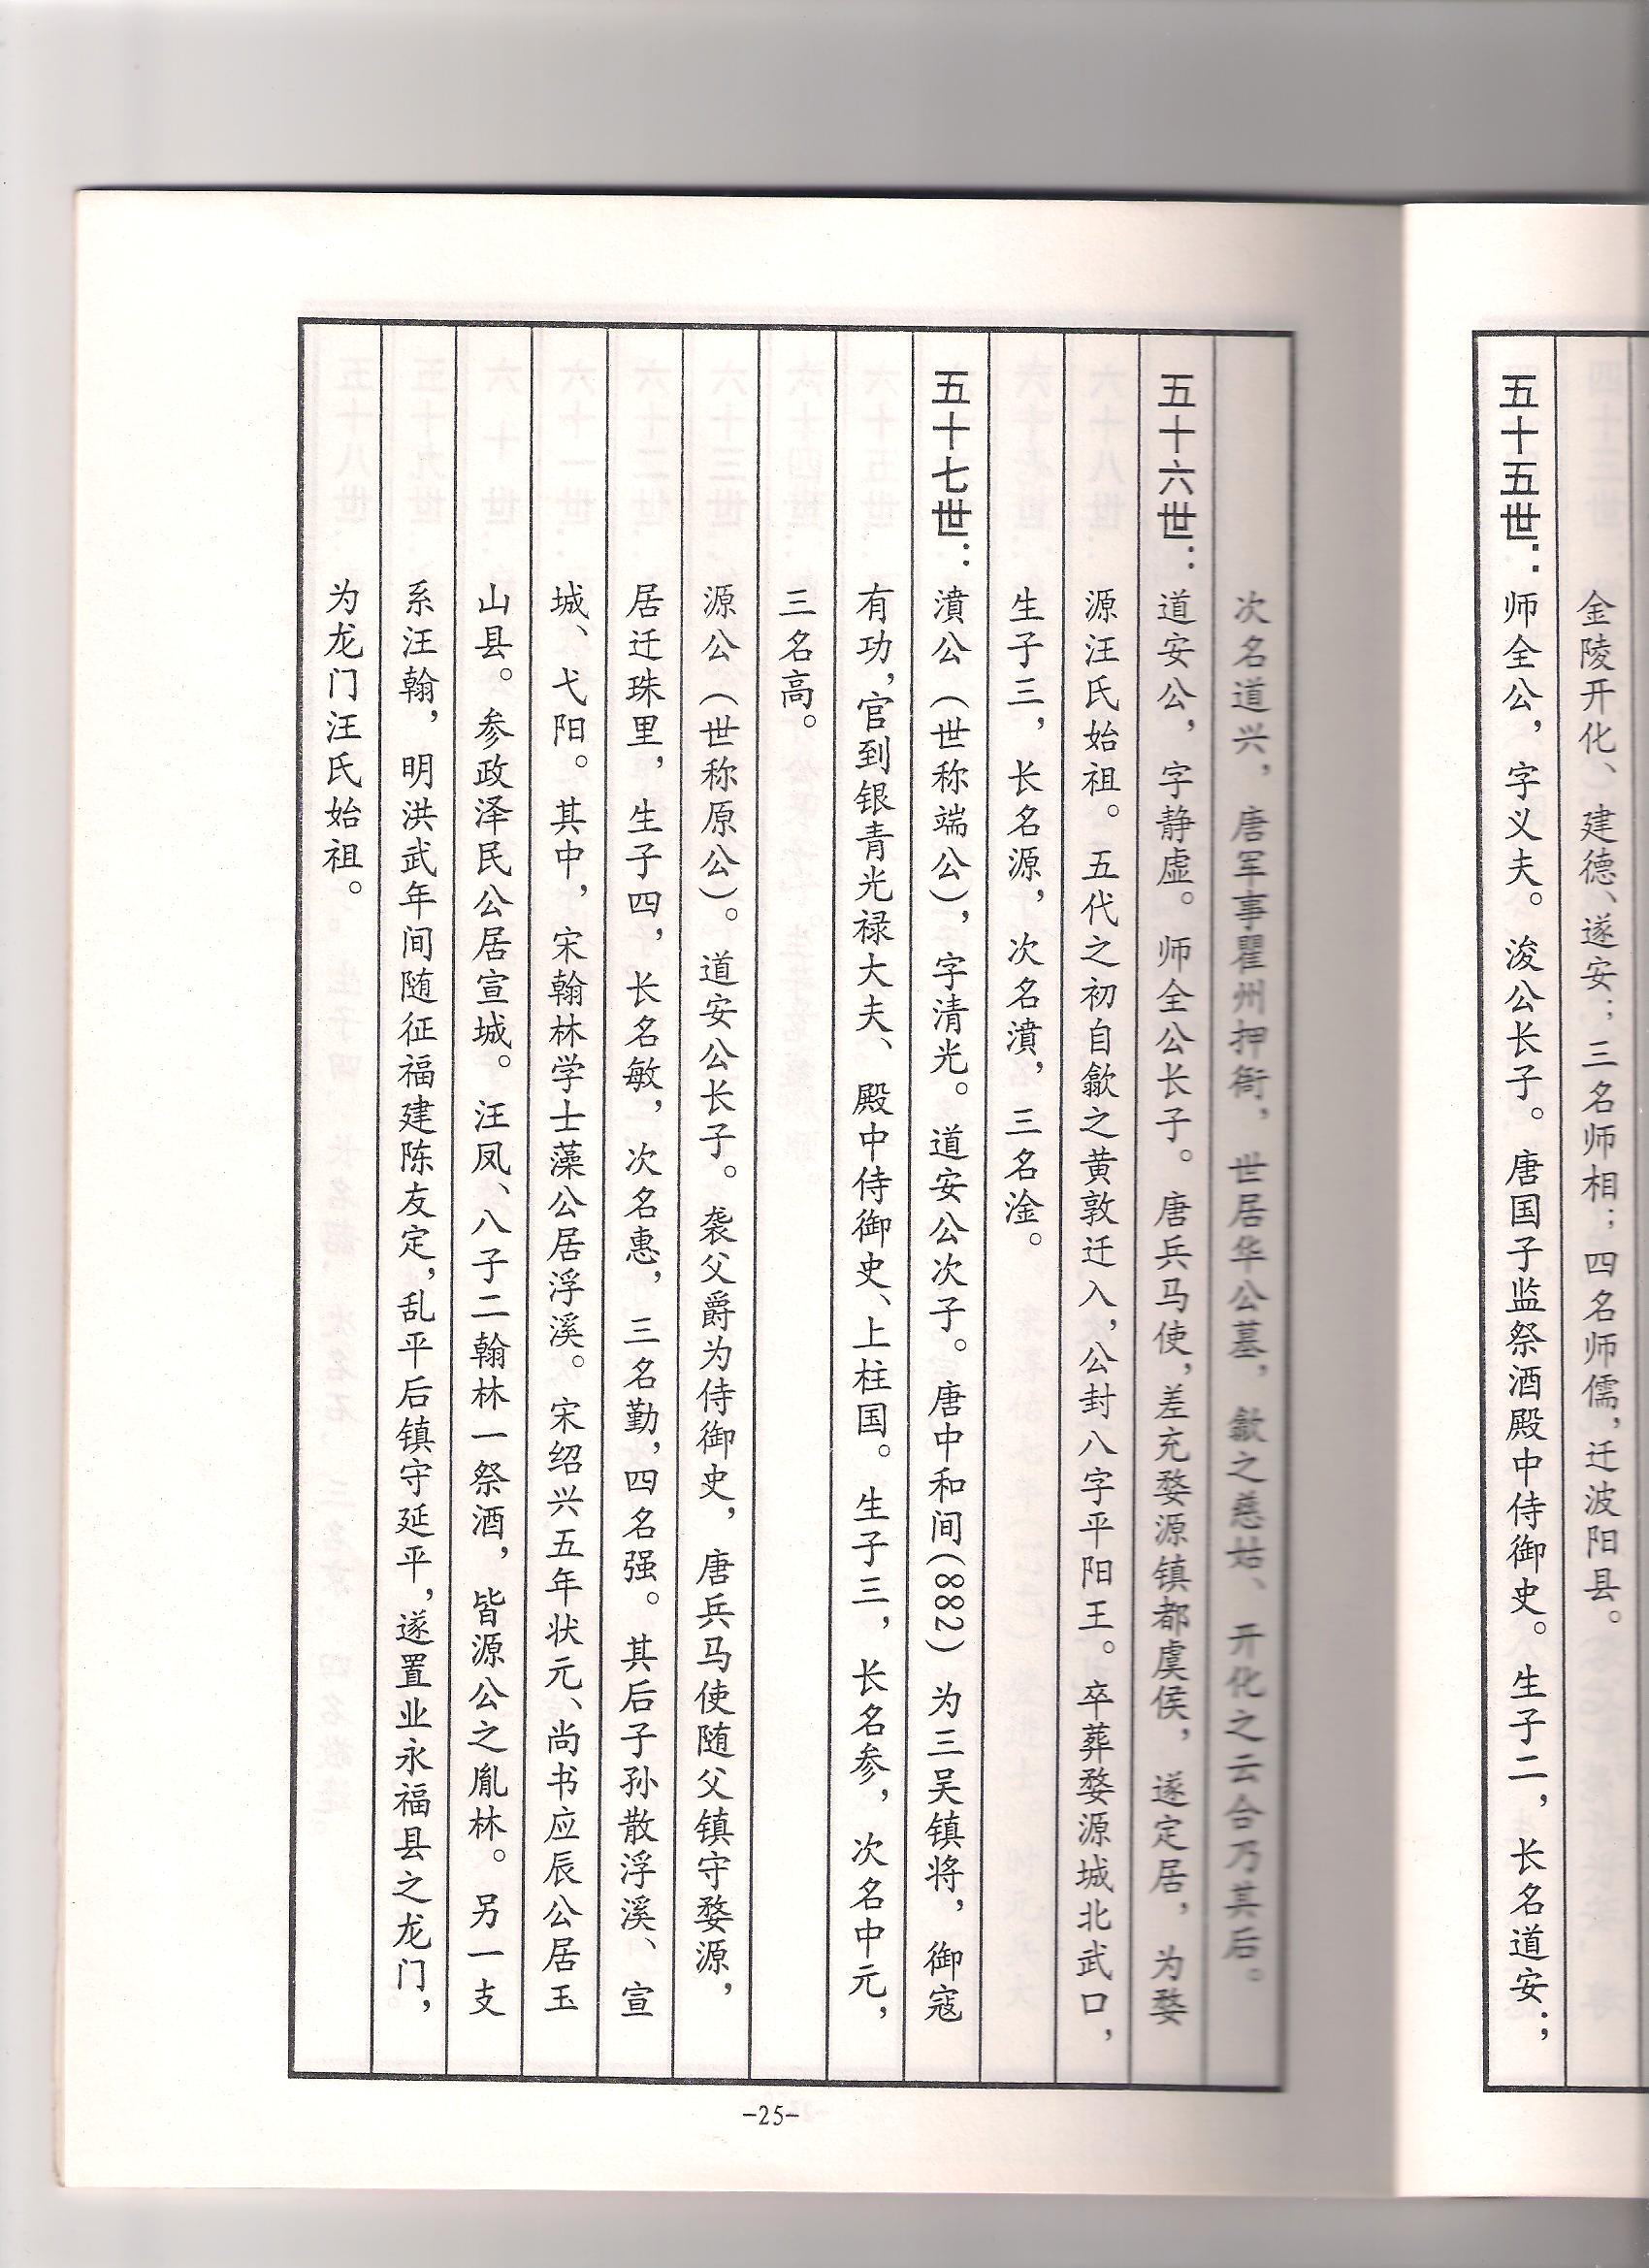 金陵开化、建德、遂安；三名师相；四名师儒，迁波阳县。
五十五世：师全公，字义夫。浚公长子。唐国子监祭酒殿中侍御史。生子二，长名道安；
次名道兴，唐军事瞿州押衙，世居华公墓，歙之慈姑、开化之云合乃其后。
五十六世：道安公，字静虚。师全公长子。唐兵马使，差充婺源镇都虞侯，遂定居，为婺
源汪氏始祖。五代之初自歙之黄敦迁入，公封八字平阳王。卒葬婺源城北武口，
生子三，长名源，次名濆，三名淦。
五十七世：濆公（世称端公），字清光。道安公次子。唐中和间(882)为三吴镇将，御寇
有功，官到银青光禄大夫、殿中侍御史、上柱国。生子三，长名参，次名中元，
三名高。
源公（世称原公）。道安公长子。袭父爵为侍御史，唐兵马使随父镇守婺源，
居迁珠里，生子四，长名敏，次名惠，三名勤，四名强。其后子孙散浮溪、宣
城、弋阳。其中，宋翰林学士藻公居浮溪。宋绍兴五年状元、尚书应辰公居玉
山县。参政泽民公居宣城。汪凤、八子二翰林一祭酒，皆源公之胤林。另一支
系汪翰，明洪武年间随征福建陈友定，乱平后镇守延平，遂置业永福县之龙门，
为龙门汪氏始祖。
-25-